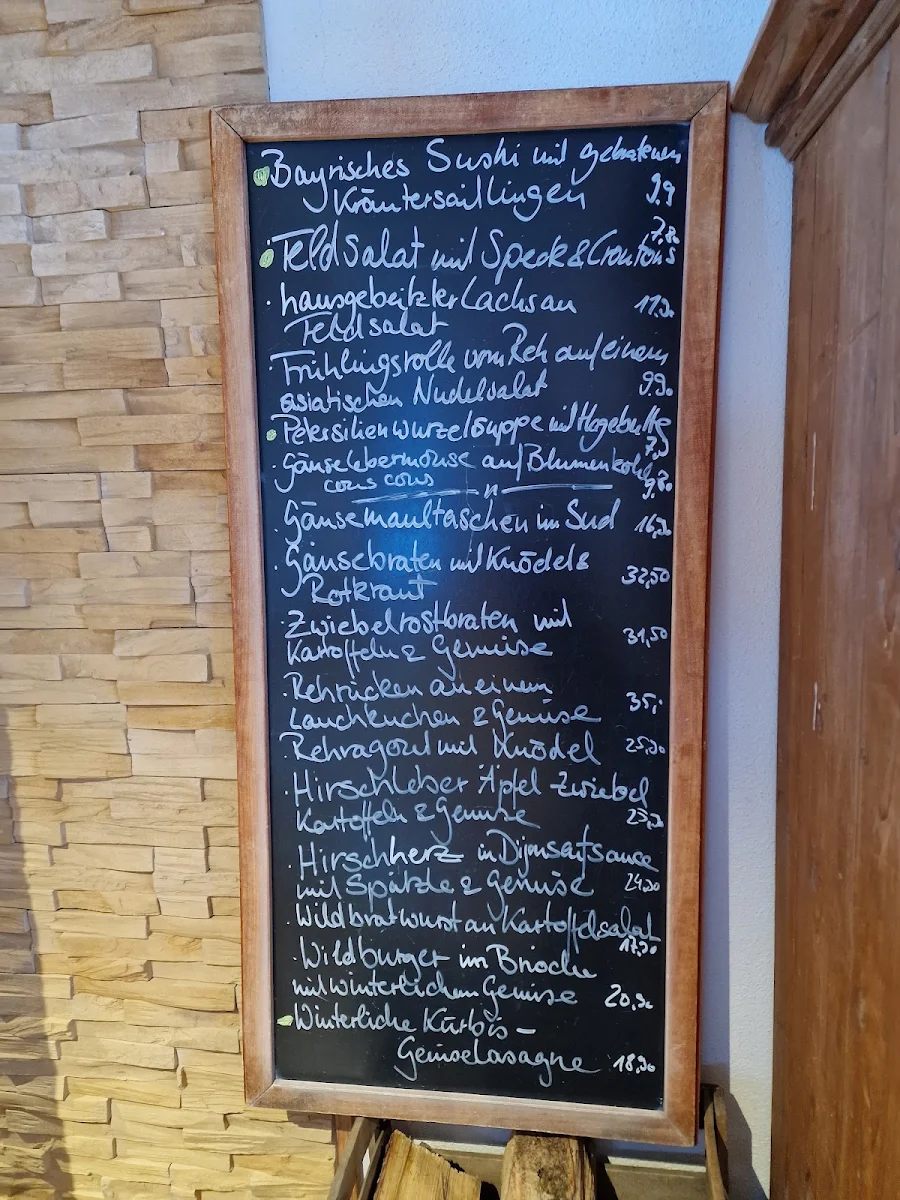 Bayrisches Sushi mit gebratenem
Kräutersaiblingen 9,9
7,90
Feldsalat mit Speck & Croutons
· hausgebeizter Lachs an 11,90
Feldsalat
· Frühlingsrolle vom Reh auf einem
asiatischen Nudelsalat 9,90
· Petersilienwurzelsuppe mit Hagebutte
7,9
· Gänselebermousse auf Blumenkohl
cous cous 9,80
· Gänsemaultaschen im Sud 16,90
· Gänsebraten mit Knödel &
Rotkraut 32,50
· Zwiebelrostbraten mit
Kartoffeln & Gemüse 31,50
· Rehrücken an einem
Lauchkuchen & Gemüse 35,-
· Rehragout mit Knödel 25,90
· Hirschleber Äpfel Zwiebel
Kartoffeln & Gemüse 23,90
· Hirschherz in Dijonsenfsauce
mit Spätzle & Gemüse 24,90
· Wildbratwurst an Kartoffelsalat
17,90
· Wildburger im Brioche
mit winterlichem Gemüse 20,90
Winterliche Kürbis-
Gemüselasagne 18,90